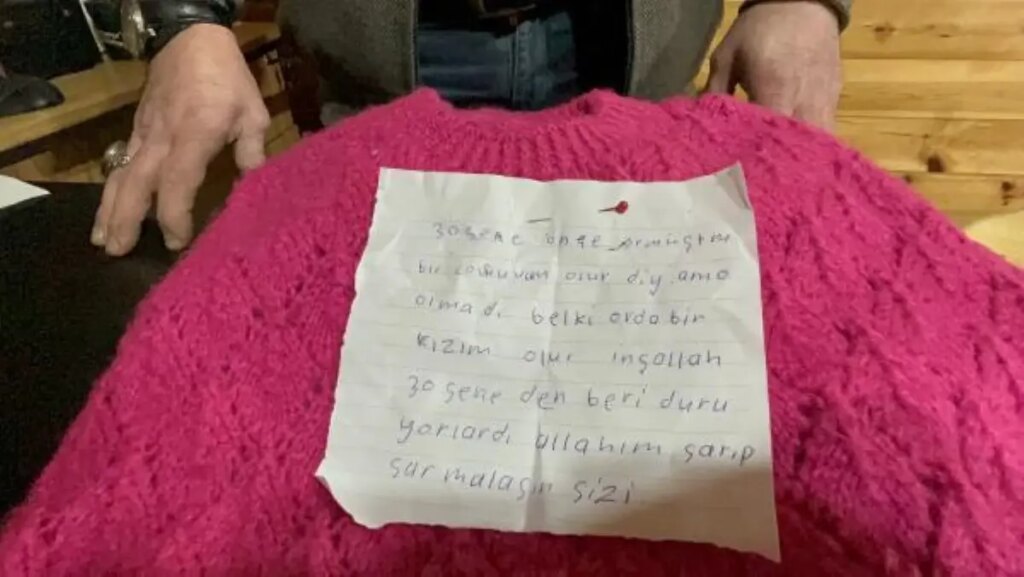 30 sene önce örmüştüm
bir çocuğum olur diy. ama
olmadı belki orda bir
kızım olur inşallah
30 sene den beri duru
yorlardı allahım sarıp
sarmalasın sizi